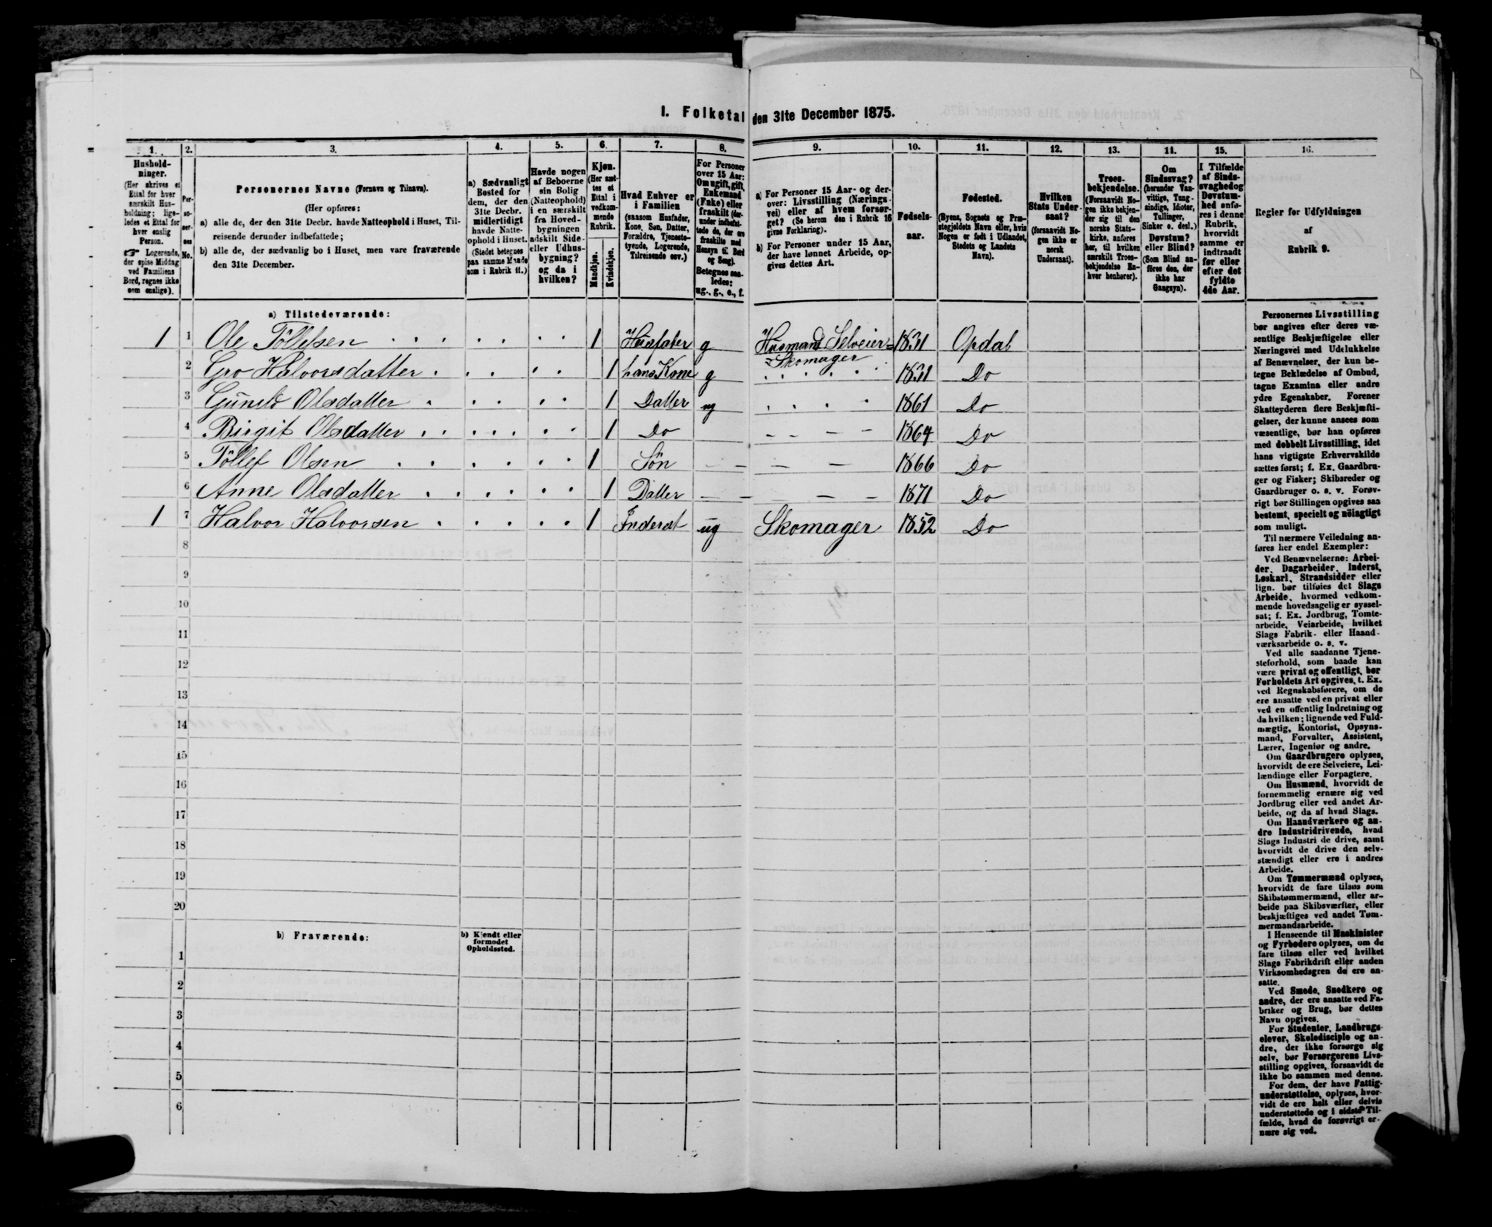 I. Folketal den 31te December 1875.
1. 2. 3. 4. 5. 6. 7. 8. 9. 10. 11. 12. 13. 14. 15. 16.
Hushold-
ninger.
(Her skrives et
Ettal for hver
særskilt Hus-
holdning; lige-
ledes et Ettal for
hver enslig
Person.
☞ Logerende,
der spise Middag
ved Familiens
Bord, regnes ikke
som enslige).
Per-
so-
ner-
nes
No.
Personernes Navne (Fornavn og Tilnavn).
(Her opføres:
a) alle de, der den 31te Decbr. havde Natteophold i Huset, Til-
reisende derunder indbefattede;
b) alle de, der sædvanlig bo i Huset, men vare fraværende
den 31te December.
a) Sædvanligt
Bosted for
dem, der den
31te Decbr.
midlertidigt
havde Natte-
ophold i Huset.
(Stedet betegnes
paa samme Maade
som i Rubrik 11.)
Havde nogen
af Beboerne
sin Bolig
(Natteophold)
i en særskilt
fra Hoved-
bygningen
adskilt Side-
eller Udhus-
bygning?
og da i
hvilken?
Kjøn.
(Her sæt-
tes et
Ettal i
vedkom-
mende
Rubrik.
Mandkjøn.
Kvindekjøn.
Hvad Enhver er
i Familien
(saasom Husfader,
Kone, Søn, Datter,
Forældre, Tjeneste-
tyende, Logerende,
Tilreisende osv.)
For Personer
over 15 Aar:
Om ugift, gift,
Enkemand
(Enke) eller
fraskilt (der-
under indbefat-
tede de, der ere
fraskilte med
Hensyn til Bord
og Seng).
Betegnes saa-
ledes:
ug., g., e., f.
a) For Personer 15 Aar- og der-
over: Livsstilling (Nærings-
vei) eller af hvem forsør-
get? (Se herom den i Rubrik 16
givne Forklaring).
b) For Personer under 15 Aar,
der have lønnet Arbeide, op-
gives dettes Art.
Fødsels-
aar.
Fødested.
(Byens, Sognets og Præ-
stegjeldets Navn eller, hvis
Nogen er født i Udlandet,
Stedets og Landets
Navn).
Hvilken
Stats Under-
saat?
(forsaavidt No-
gen ikke er
norsk
Undersaat).
Troes-
bekjendelse.
(Forsaavidt No-
gen ikke bekjen-
der sig til den
norske Stats-
kirke, anføres
her, til hvilken
særskilt Troes-
bekjendelse En-
hver henhører).
Om
Sindssvag?
(herunder Van-
vittige, Tung-
sindige, Idioter,
Tullinger,
Sinker o. desl.)
Døvstum?
eller Blind?
(Som Blind an-
føres den, der
ikke har
Gangsyn).
I Tilfælde
af Sinds-
svaghed og
Døvstum-
hed anfø-
res i denne
Rubrik,
hvorvidt
samme er
indtraadt
før eller
efter det
fyldte
4de Aar.
Regler for Udfyldningen
af
Rubrik 9.
a) Tilstedeværende:
1 1 Ole Tøllefsen 1 Husfader g Husmand Selveier = Skomager 1831 Opdal
2 Gro Halvorsdatter 1 hans Kone g 1831 Do
3 Gunild Olsdatter 1 Datter ug 1861 Do
4 Birgit Olsdatter 1 Do 1864 Do
5 Tøllef Olsen 1 Søn 1866 Do
6 Anne Olsdatter 1 Datter 1871 Do
1 7 Halvor Halvorsen 1 Inderst ug Skomager 1852 Do
8
9
10
11
12
13
14
15
16
17
18
19
20
b) Fraværende:
b) Kjendt eller
formodet
Opholdssted.
1
2
3
4
5
6
Personernes Livsstilling
bør angives efter deres væ-
sentlige Beskjæftigelse eller
Næringsvei med Udelukkelse
af Benævnelser, der kun be-
tegne Beklædelse af Ombud,
tagne Examina eller andre
ydre Egenskaber. Forener
Skatteyderen flere Beskjæfti-
gelser, der kunne ansees som
væsentlige, bør han opføres
med dobbelt Livsstilling, idet
hans vigtigste Erhvervskilde
sættes først; f. Ex. Gaardbru-
ger og Fisker; Skibsreder og
Gaardbruger o. s. v. Forøv-
rigt bør Stillingen opgives saa
bestemt, specielt og nøiagtigt
som muligt.
Til nærmere Veiledning an-
føres her endel Exempler:
Ved Benævnelserne: Arbei-
der, Dagarbeider, Inderst,
Løskarl, Strandsidder eller
lign. bør tilføies det Slags
Arbeide, hvormed vedkom-
mende hovedsagelig er syssel-
sat; f. Ex. Jordbrug, Tomte-
arbeide, Veiarbeide, hvilket
Slags Fabrik- eller Haand-
værksarbeide o. s. v.
Ved alle saadanne Tjene-
steforhold, som baade kan
være privat og offentligt, bør
Forholdets Art opgives, t. Ex.
ved Regnskabsførere, om de
ere ansatte ved en privat eller
ved en offentlig Indretning og
da hvilken; lignende ved Fuld-
mægtig, Kontorist, Opsyns-
mand, Forvalter, Assistent,
Lærer, Ingeniør og andre.
Om Gaardbrugere oplyses,
hvorvidt de ere Selveiere, Lei-
lændinge eller Forpagtere.
Om Husmænd, hvorvidt de
fornemmelig ernære sig ved
Jordbrug eller ved andet Ar-
beide, og da af hvad Slags.
Om Haandværkere og an-
dre Industridrivende, hvad
Slags Industri de drive, samt
hvorvidt de drive den selv-
stændigt eller ere i andres
Arbeide.
Om Tømmermænd oplyses,
hvorvidt de fare tilsøs som
Skibstømmermænd, eller ar-
beide paa Skibsværfter, eller
beskjæftiges ved andet Tøm-
mermandsarbeide.
I Henseende til Maskinister
og Fyrbødere oplyses, om de
fare tilsøs eller ved hvilket
Slags Fabrikdrift eller anden
Virksomhedsgren de ere an-
satte.
Ved Smede, Snedkere og
andre, der ere ansatte ved Fa-
briker og Brug, bør dettes
Navn opgives.
For Studenter, Landbrugs-
elever, Skoledisciple og an-
dre, der ikke forsørge sig
selv, bør Forsørgerens Livs-
stilling opgives, forsaavidt de
ikke bo sammen med denne.
For dem, der have Fattig-
understøttelse, oplyses, hvor-
vidt de ere helt eller delvis
understøttede og i sidste Til-
fælde, hvad de forøvrigt er-
nære sig ved.